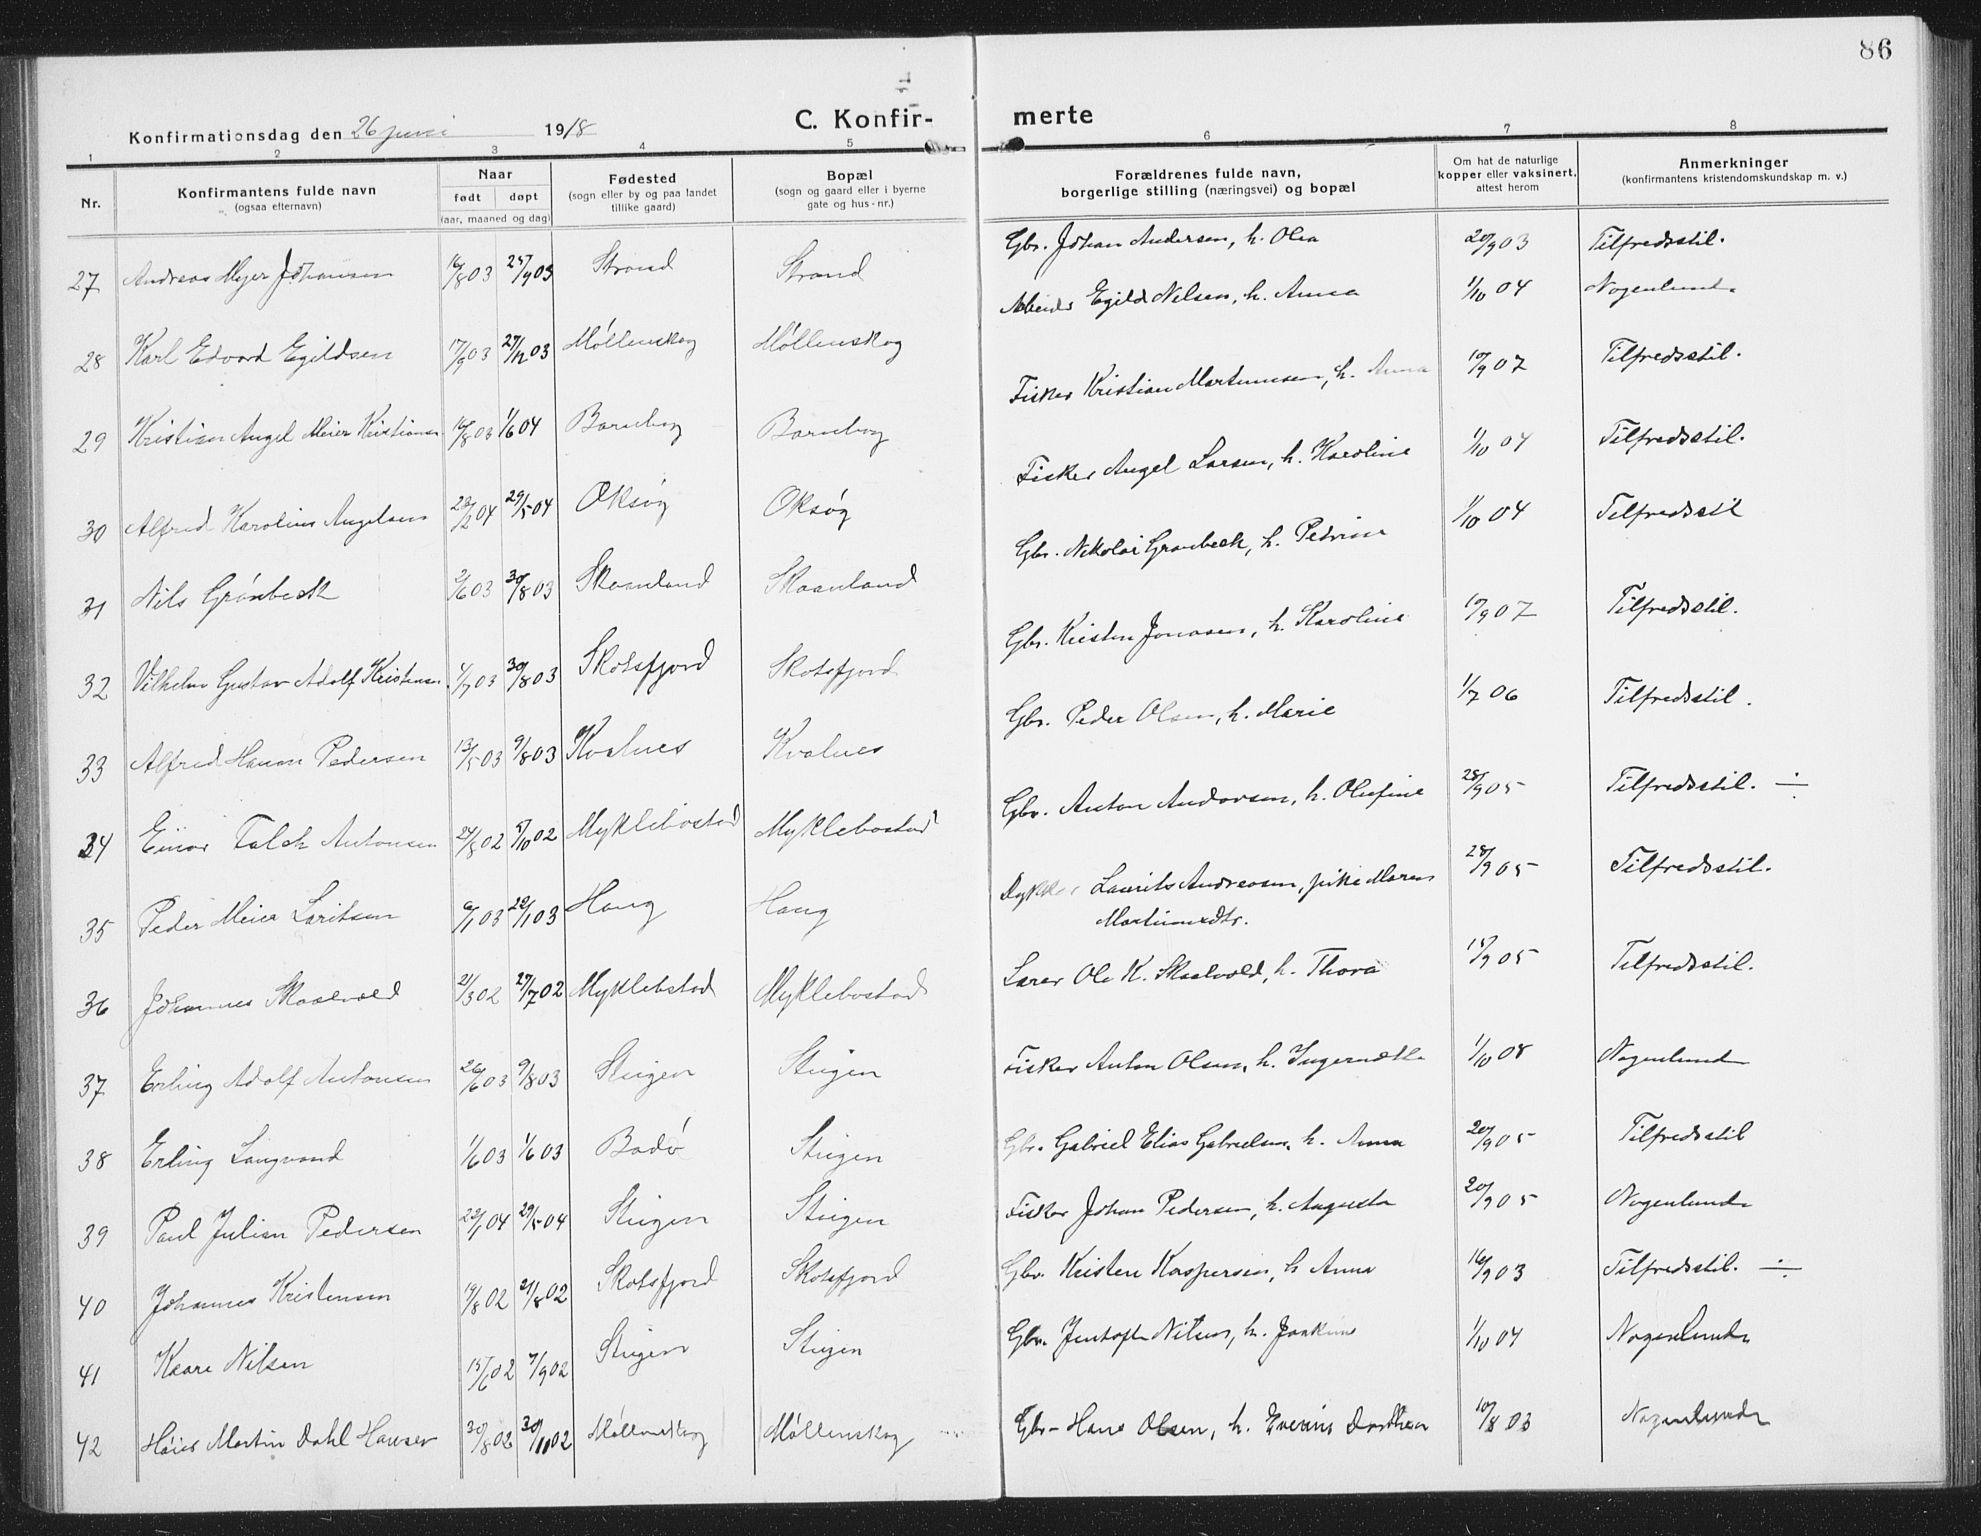 86
C. Konfir- merte
Konfirmationsdag den 26 juni 1918
1 2 3 4 5 6 7 8
Nr. Konfirmantens fulde navn (ogsaa efternavn) Naar født døpt (aar, maaned og dag) Fødested (sogn eller by og paa landet tillike gaard) Bopæl (sogn og gaard eller i byerne gate og hus-nr.) Forældrenes fulde navn, borgerlige stilling (næringsvei) og bopæl Om hat de naturlige kopper eller vaksinert, attest herom Anmerkninger (konfirmantens kristendomskundskap m. v.)
27 Andreas Meyer Johansen 16/8 03 25/9 03 Strand Strand Gbr. Johan Andersen, h. Olea 20/9 03 Tilfredsstil.
28 Karl Edvard Egildsen 17/9 03 27/12 03 Møllenskog Møllenskog Arbeider Egild Nilsen, h. Anna 1/10 04 Nogenlunde
29 Kristian Angel Meier Kristiansen 16/8 03 1/6 04 Barnbog Barnbog Fisker Kristian Martinussen, h. Anna 10/9 07 Tilfredsstil.
30 Alfred Karolius Angelsen 23/2 04 29/5 04 Oksøg Oksøg Fisker Angel Larsen, h. Karoline 1/10 04 Tilfredsstil.
31 Nils Grønbeck 2/6 03 30/8 03 Skaanland Skaanland Gbr. Nikolai Grønbeck, h. Petrine 1/10 04 Tilfredsstil
32 Vilhelm Gustav Adolf Kristensen 4/7 03 30/8 03 Skotsfjord Skotsfjord Gbr. Kristen Jonasen, h. Karoline 10/9 07 Tilfredsstil.
33 Alfred Hanon Pedersen 13/5 03 9/8 03 Kvalnes Kvalnes Gbr. Peder Olsen, h. Marie 1/7 06 Tilfredsstil.
34 Einar Falck Antonsen 24/8 02 5/10 02 Myklebostad Myklebostad Gbr. Anton Andorsen, h. Olufine 28/9 05 Tilfredsstil. ÷
35 Peder Meier Loritsen 6/1 03 22/1 03 Haug Haug Laurits Andreasen, pike Maren
Martinusdtr. 28/9 05 Tilfredsstil.
36 Johannes Skaalvold 21/3 02 27/7 02 Myklebstad Myklebostad Lærer Ole K. Skaalvold, h. Thora 15/9 05 Tilfredsstil.
37 Erling Adolf Antonsen 26/6 03 9/8 03 Steigen Steigen Fisker Anton Olsen, h. 1/10 08 Nogenlunde
38 Erling Langvand 1/6 03 1/6 03 Bodø Steigen Gbr. Gabriel Elias Gabrielsen, h. Anna 20/9 05 Tilfredsstil
39 Paul Julian Pedersen 22/1 04 29/5 04 Steigen Steigen Fisker Johan Pedersen, h. Augusta 20/9 05 Nogenlunde
40 Johannes Kristensen 19/8 02 21/8 02 Skotsfjord Skotsfjord Gbr. Kristen Kaspersen, h Anna 16/9 03 Tilfredsstil. ÷
41 Kaare Nilsen 15/6 02 7/9 02 Steigen Steigen Gbr. Jentoft Nilsen, h. 1/10 04 Nogenlunde
42 Martin Dahl Hansen 30/8 02 30/11 02 Møllenskog Møllenskog Gbr - Hans Olsen, h. Dorthea 10/8 03 Nogenlunde